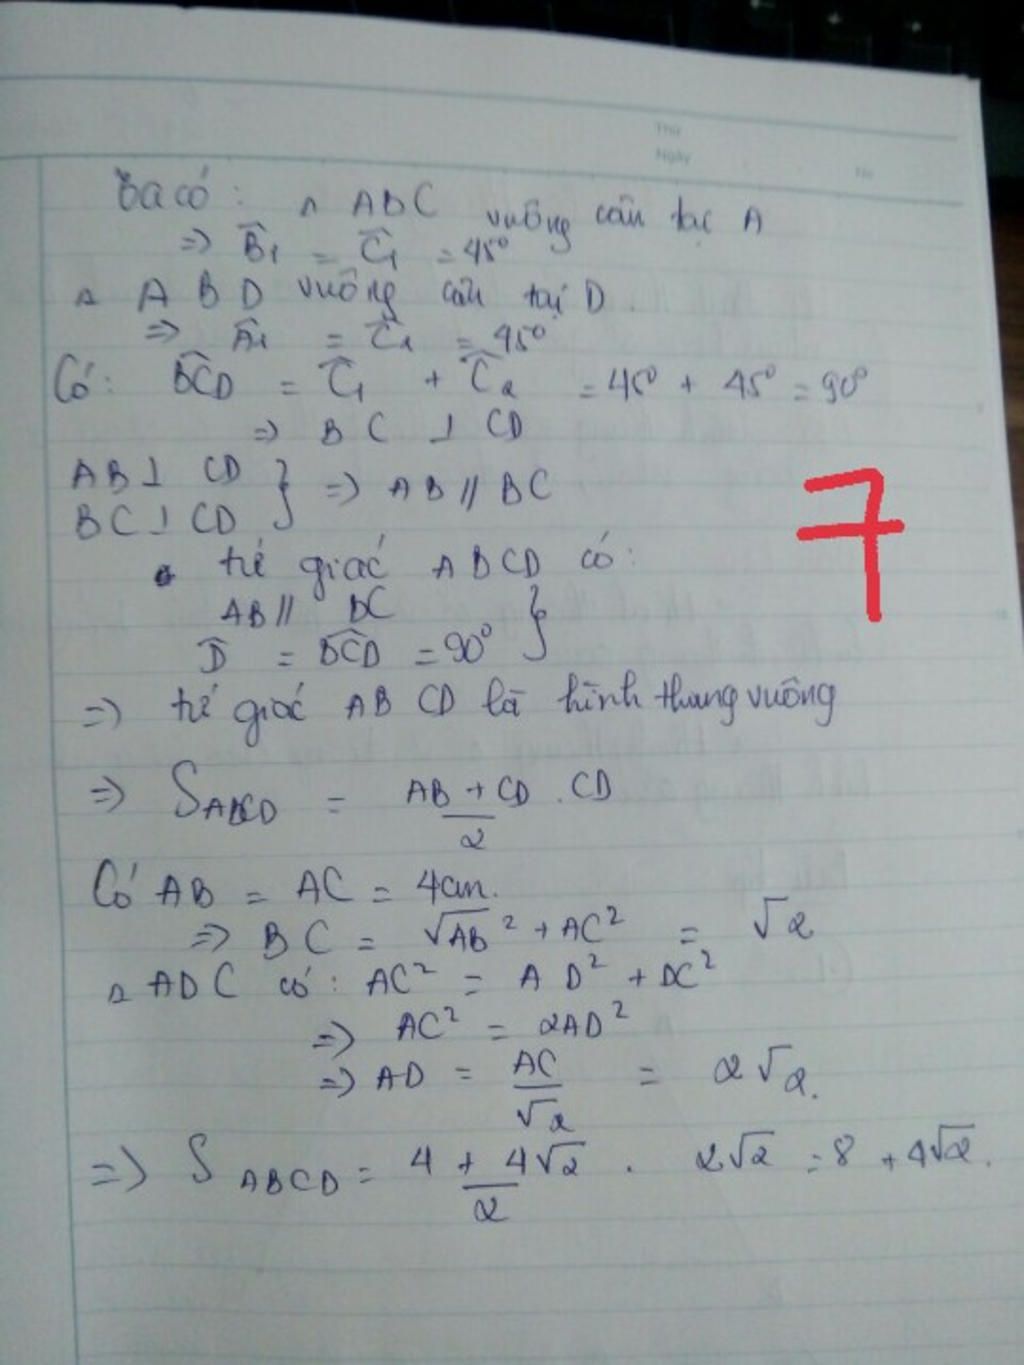 Thứ
Ngày
No
Ta có: Δ ABC vuông cân tại A
=> B̂₁ = Ĉ₁ = 45°
Δ ABD vuông cân tại D.
=> Â₁ = Ĉ₂ = 45°
Có: BĈD = Ĉ₁ + Ĉ₂ = 45° + 45° = 90°
=> BC ⊥ CD
AB ⊥ CD
BC ⊥ CD } => AB // BC
tứ giác ABCD có:
AB // DC
D̂ = BĈD = 90° }
=> tứ giác ABCD là hình thang vuông
=> S ABCD = AB + CD / 2 . CD
Có AB = AC = 4cm.
=> BC = √AB² + AC² = √2
Δ ADC có: AC² = AD² + DC²
=> AC² = 2AD²
=> AD = AC / √2 = 2√2.
=> S ABCD = 4 + 4√2 / 2 . 2√2 = 8 + 4√2.
7